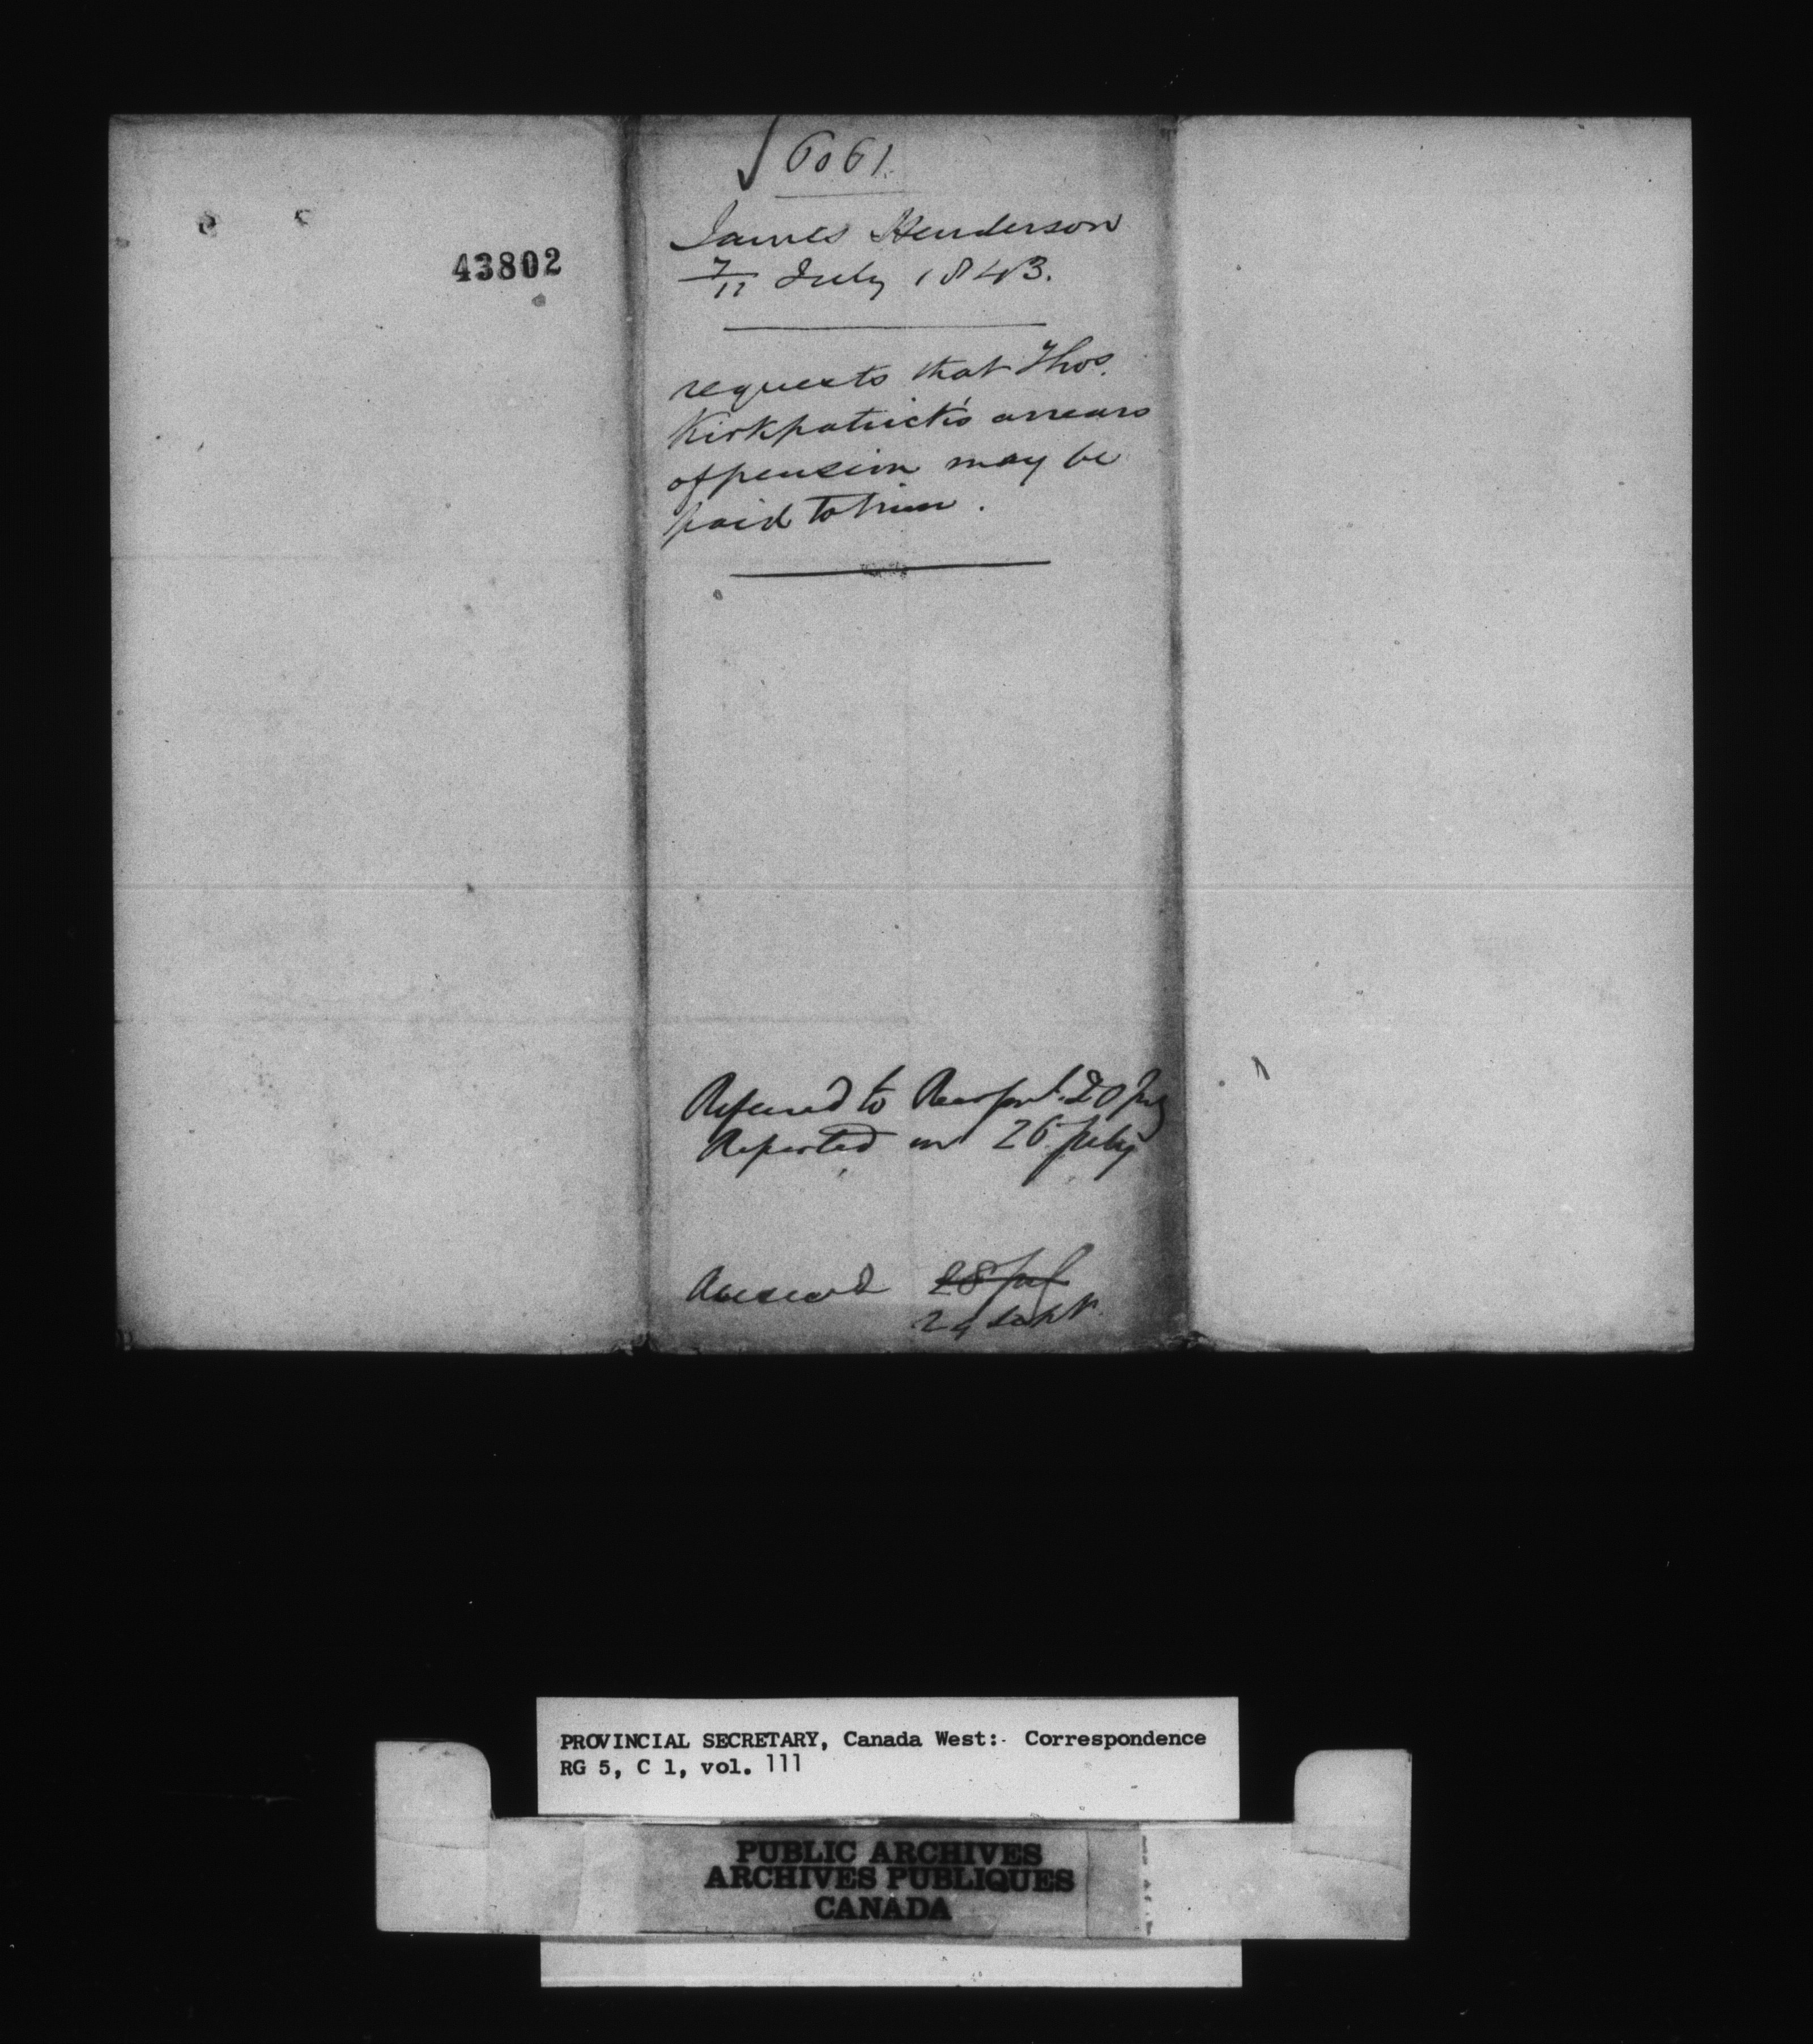 6061.
43802
James Henderson
7/11 July 1843.
requests that Thos.
Kirkpatrick's arrears
of pension may be
paid to him.
Referred to 20 July
Reported on 26 July
Answered 28 Jul
24 Sept.
PROVINCIAL SECRETARY, Canada West: Correspondence
RG 5, C 1, vol. 111
PUBLIC ARCHIVES
ARCHIVES PUBLIQUES
CANADA